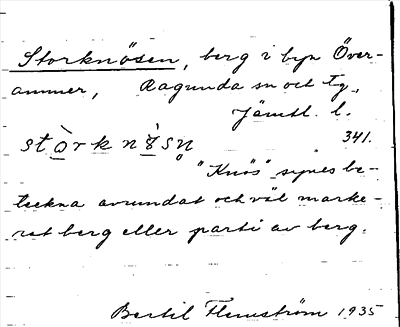 Storknösen, berg i byn Över-
ammer, Ragunda sn och tg,
Jämtl. l.
341.
"Knös" synes be-
teckna avrundat och väl marke-
rat berg eller parti av berg.
Bertil Flemström 1935